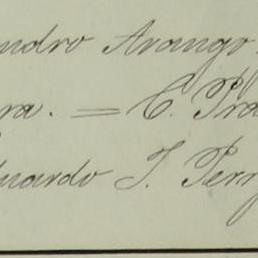 ndro Arango
ra. = C. Pra
uardo J. Perr